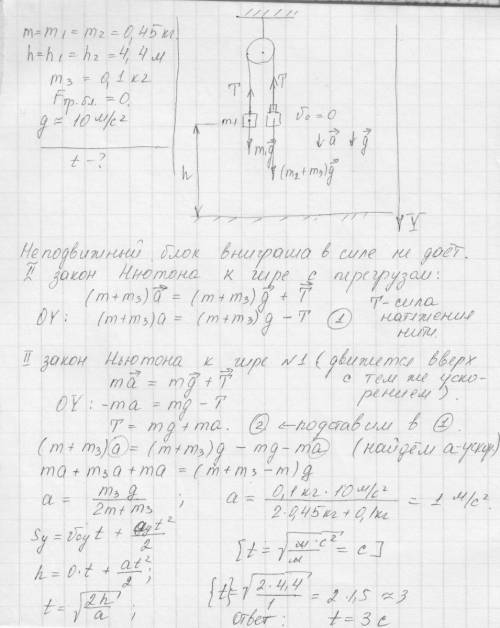 m=m₁=m₂=0,45кг.
h=h₁=h₂=4,4м
m₃=0,1кг
Fтр.бл.=0.
g=10м/с²
t-?
T
T
m₁
V₀=0
m₁g⃗
a⃗
g⃗
(m₂+m₃)g⃗
h
Y
Неподвижный блок выиграша в силе не даёт.
II закон Нютона к гире с перегрузом:
(m+m₃)a⃗=(m+m₃)g⃗+T⃗
T-сила натяжения нити.
OY: (m+m₃)a=(m+m₃)g-T ①
II закон Ньютона к гире №1 (движется вверх
с тем же ускорением).
ma⃗=mg⃗+T⃗
OY: -ma=mg-T
T=mg+ma. ② ←подставим в ①.
(m+m₃)a=(m+m₃)g-mg-ma (найдём a-ускор)
ma+m₃a+ma=(m+m₃-m)g
a=m₃g/(2m+m₃); a=(0,1кг·10м/с²)/(2·0,45кг+0,1кг)=1м/с².
Sy=V₀yt+ayt²/2
[t=√(м·с²/м)=с]
h=0·t+at²/2;
t=√(2h/a);
{t}=√(2·4,4/1)=2·1,5≈3
Ответ: t=3с